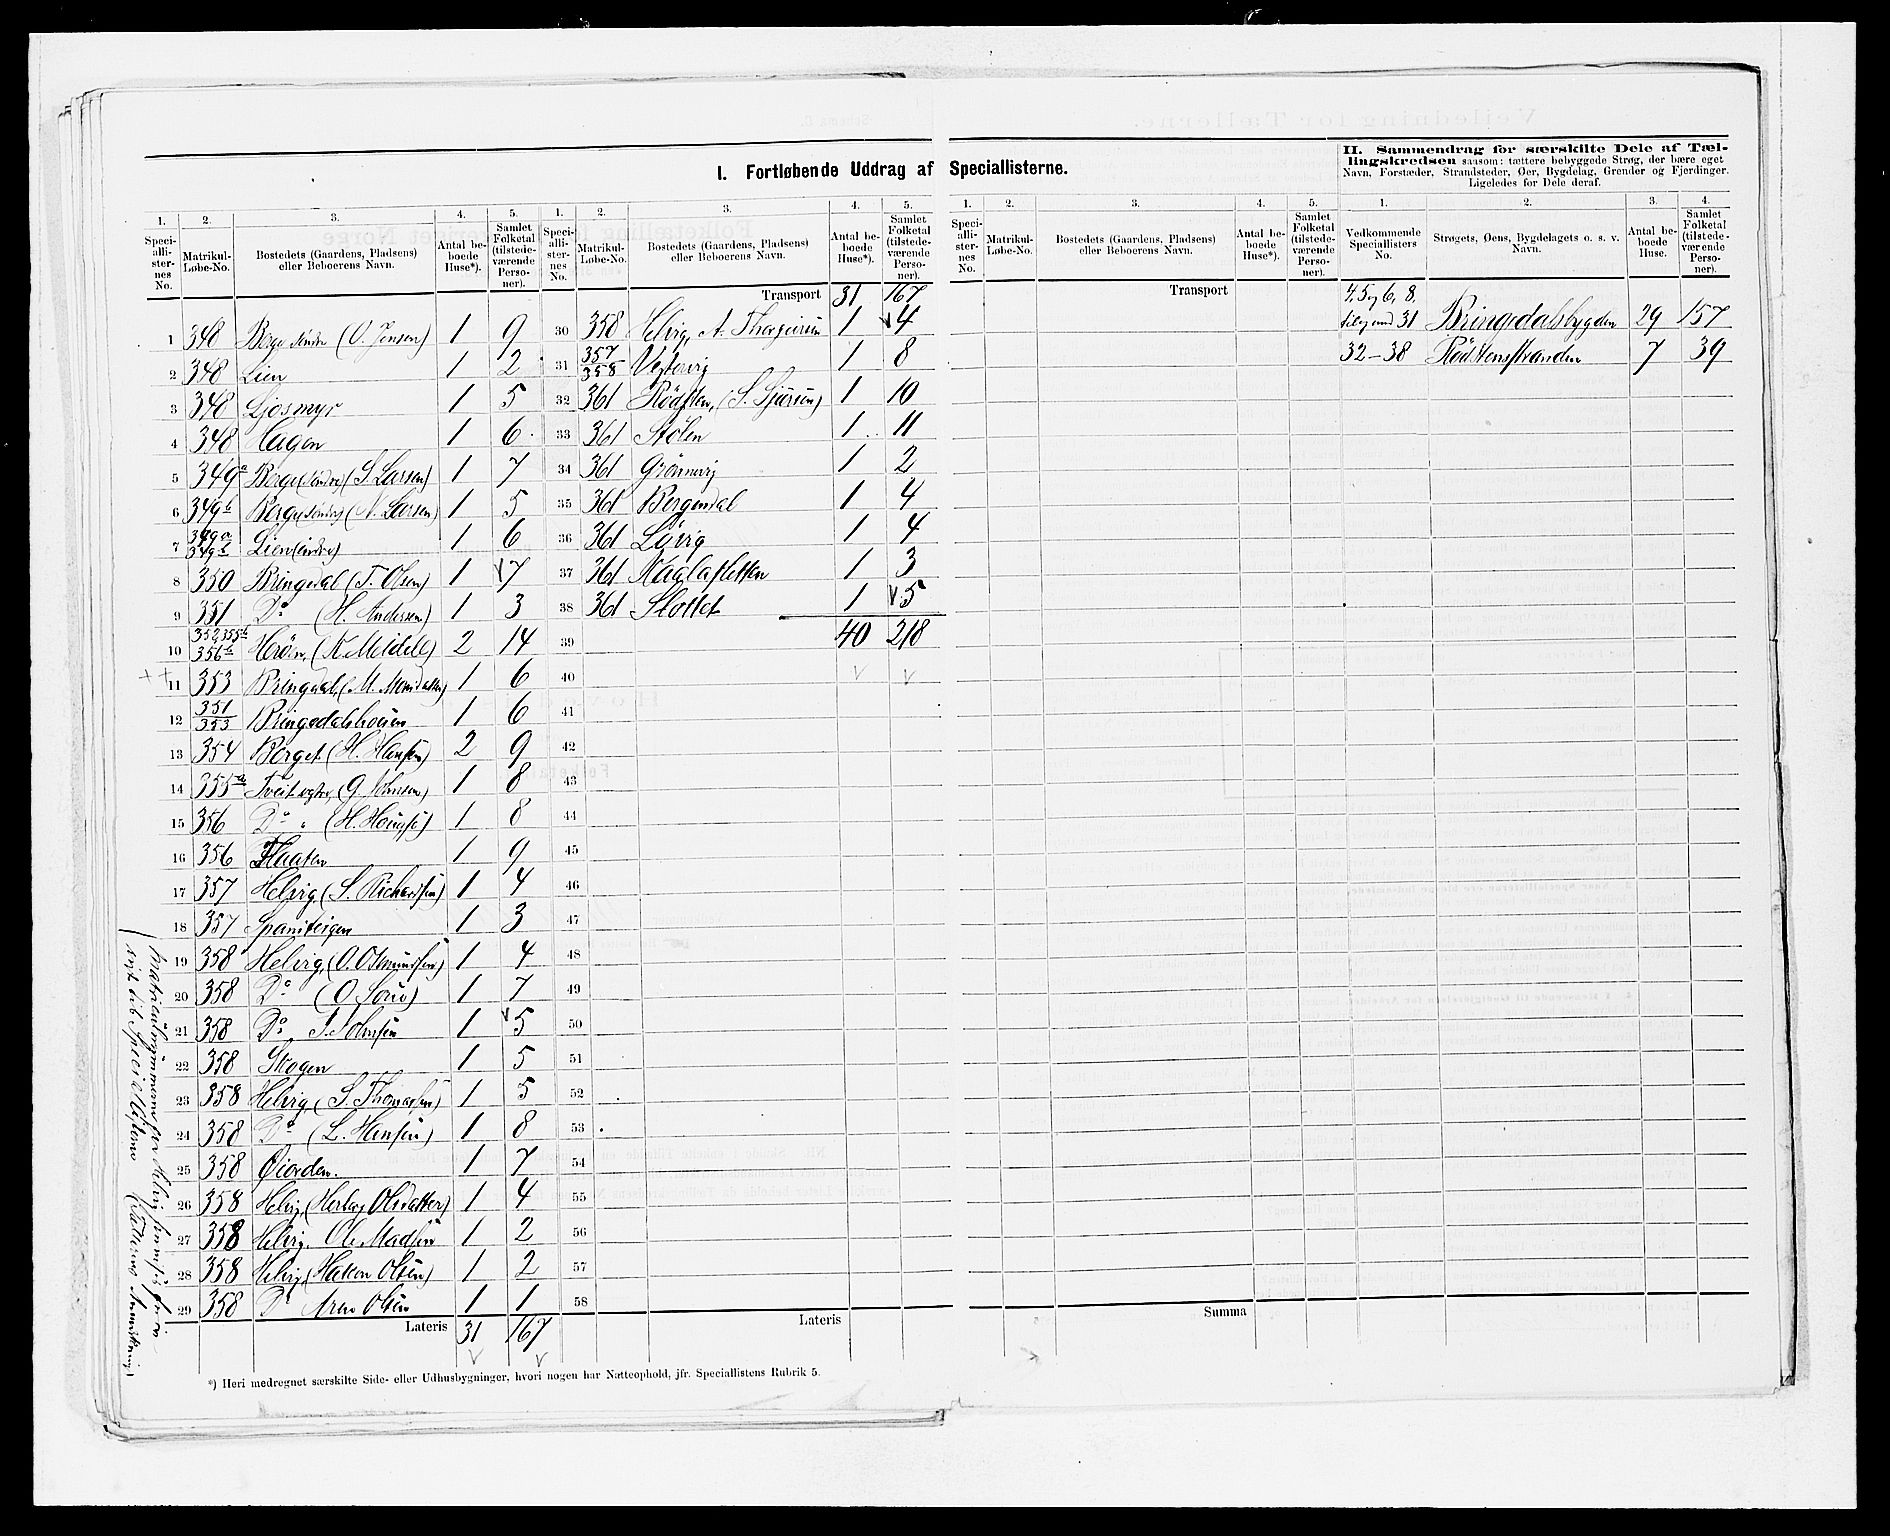 I. Fortløbende Uddrag af Speciallisterne.
II. Sammendrag for særskilte Dele af Tæl-
lingskredsen saasom: tættere bebyggede Strøg, der bære eget
Navn, Forstæder, Strandsteder, Øer, Bygdelag, Grender og Fjerdinger.
Ligeledes for Dele deraf.
1. 2. 3. 4. 5. 1. 2. 3. 4. 5. 1. 2. 3. 4. 5. 1. 2. 3. 4.
Speciallisternes No. Matrikul-Løbe-No. Bostedets (Gaardens, Pladsens) eller Beboerens Navn. Antal beboede Huse*). Samlet Folketal (tilstedeværende Personer).
Speciallisternes No. Matrikul-Løbe-No. Bostedets (Gaardens, Pladsens) eller Beboerens Navn. Antal beboede Huse*). Samlet Folketal (tilstedeværende Personer).
Speciallisternes No. Matrikul-Løbe-No. Bostedets (Gaardens, Pladsens) eller Beboerens Navn. Antal beboede Huse*). Samlet Folketal (tilstedeværende Personer).
Vedkommende Speciallisters No. Strøgets, Øens, Bygdelagets o. s. v. Navn. Antal Huse. Samlet Folketal (tilstedeværende Personer).
1 348 Berge søndre (O. Jensen) 1 9
2 348 Lien 1 2
3 348 Ljosmyr 1 5
4 348 Hagen 1 6
5 349a Berge (søndre) (S. Larsen) 1 7
6 349b Berge søndre (N. Larsen) 1 5
7 349a 349b Lien (søndre) 1 6
8 350 Bringedal (T. Olsen) 1 7
9 351 Do (H. Andersen) 1 3
10 352, 355b 356b Herøen, (K. Meidell) 2 14
11 353 Bringdal, (M. Monsdatter) 1 6
12 351 353 Bringedalshousen 1 6
13 354 Berget (H. Hansen) 2 9
14 355a Tveit vestre, (G. Johnsen) 1 8
15 356 Do " (H. Hougsø) 1 8
16 356 Flaaten 1 9
17 357 Helvig, (S. Richardsen) 1 4
18 357 Spansteigen 1 3
19 358 Helvig, (O. Osmundsen) 1 4
20 358 Do (O. ) 1 7
21 358 Do T. Johnsen 1 5
22 358 Skogen 1 5
23 358 Helvig, (S. Thomassen) 1 5
24 358 Do (L. Hansen) 1 8
25 358 Øiorden. 1 7
26 358 Helvig (Herborg Olsdatter) 1 4
27 358 Helvig. Ole Madsen 1 2
28 358 Helvig, (Hakon Olsen) 1 2
29 358 Do Aren Olsen 1 1
Lateris 31 167
Transport 31 167
30 358 Helvig, A. Thorgeirsen 1 4
31 357 358 Vestervig 1 8
32 361 Rødsten, (S. Sjursen) 1 10
33 361 Stølen 1 11
34 361 Grønnevig 1 2
35 361 Bergendal 1 4
36 361 Løvig 1 4
37 361 Naglasletten 1 3
38 361 Slottet 1 5
39 40 218
40
41
42
43
44
45
46
47
48
49
50
51
52
53
54
55
56
57
58
Lateris
Transport
Summa
4, 5 og 6, 8, til og med 31 Bringedalsbygden 29 157
32-38 Rødstensstranden 7 39
*) Heri medregnet særskilte Side- eller Udhusbygninger, hvori nogen har Natteophold, jfr. Speciallistens Rubrik 5.